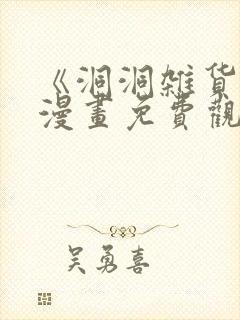 《洞洞雑貨
漫畫免費觀
吴勇喜